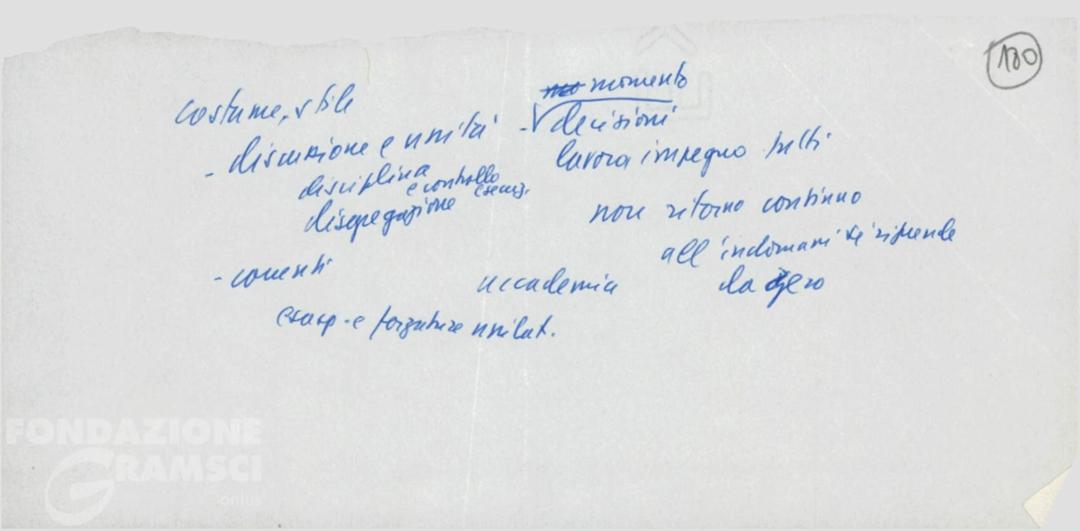 180
costume, stile
- discussione e unità
disciplina
e controllo
esecuz.
disgregazione
- correnti
esasp. e forzature unilat.
accademia
momento
- decisioni
lavoro impegno tutti
non ritorno continuo
all'indomani si riprende
da zero
FONDAZIONE
GRAMSCI
onlus